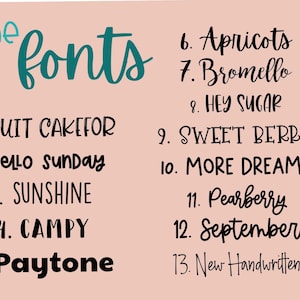 fonts
SUNSHINE
4. CAMPY
Paytone
6. Apricots
7. Bromello
8. HEY SUGAR
9. SWEET BERR
10. MORE DREAM
11. Pearberry
12. September
13. New Handwritten